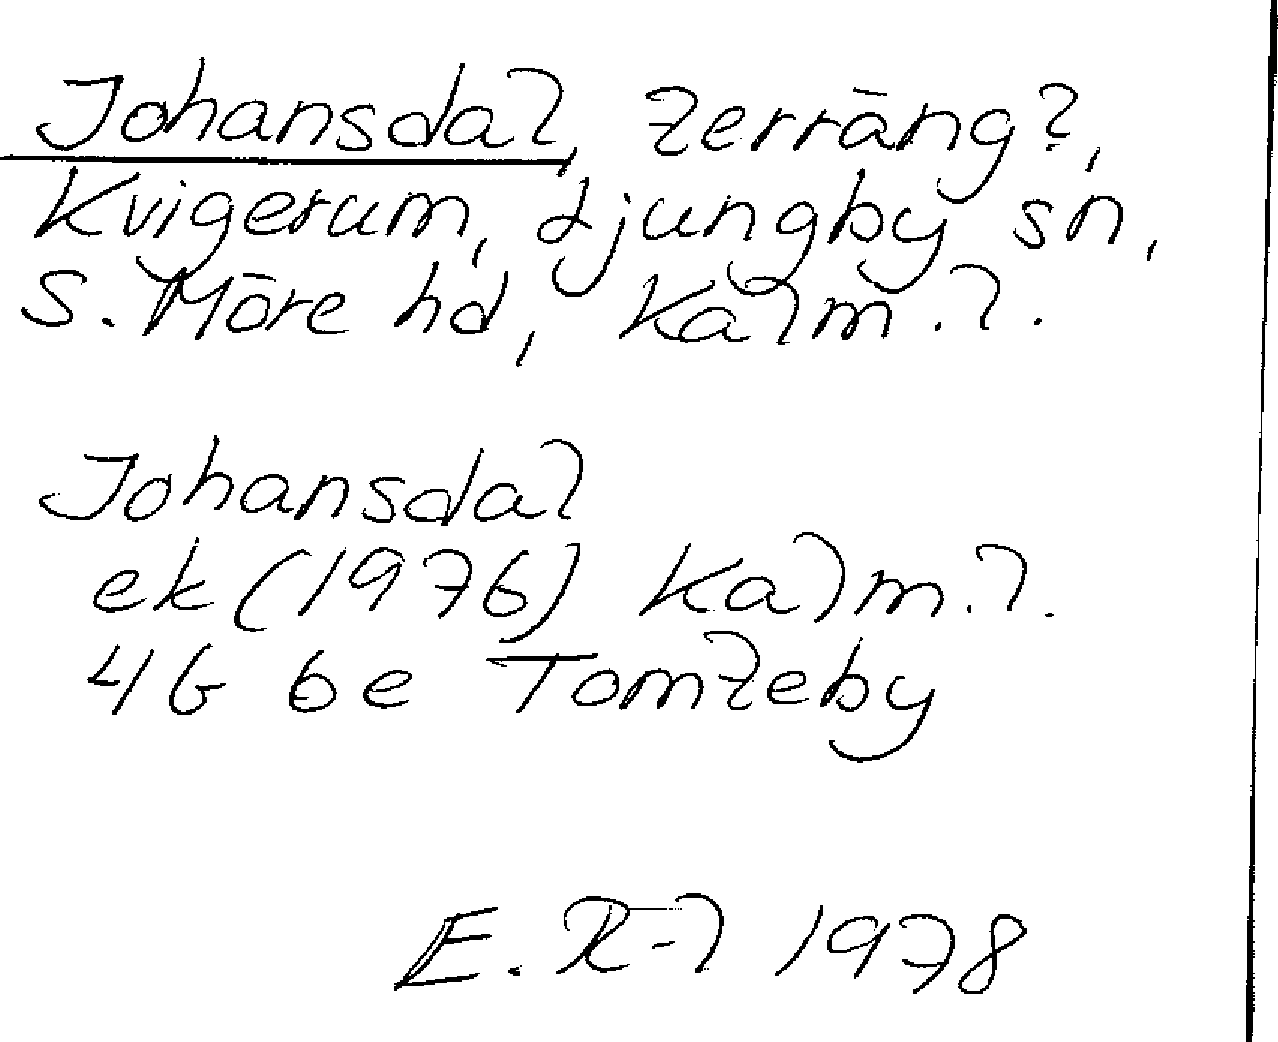 Johansdal, terräng?,
Kvigerum, Ljungby sn,
S. Möre hd, Kalm. l.
Johansdal
ek (1976) Kalm. l.
4G 6e Tomteby
E. R-l 1978